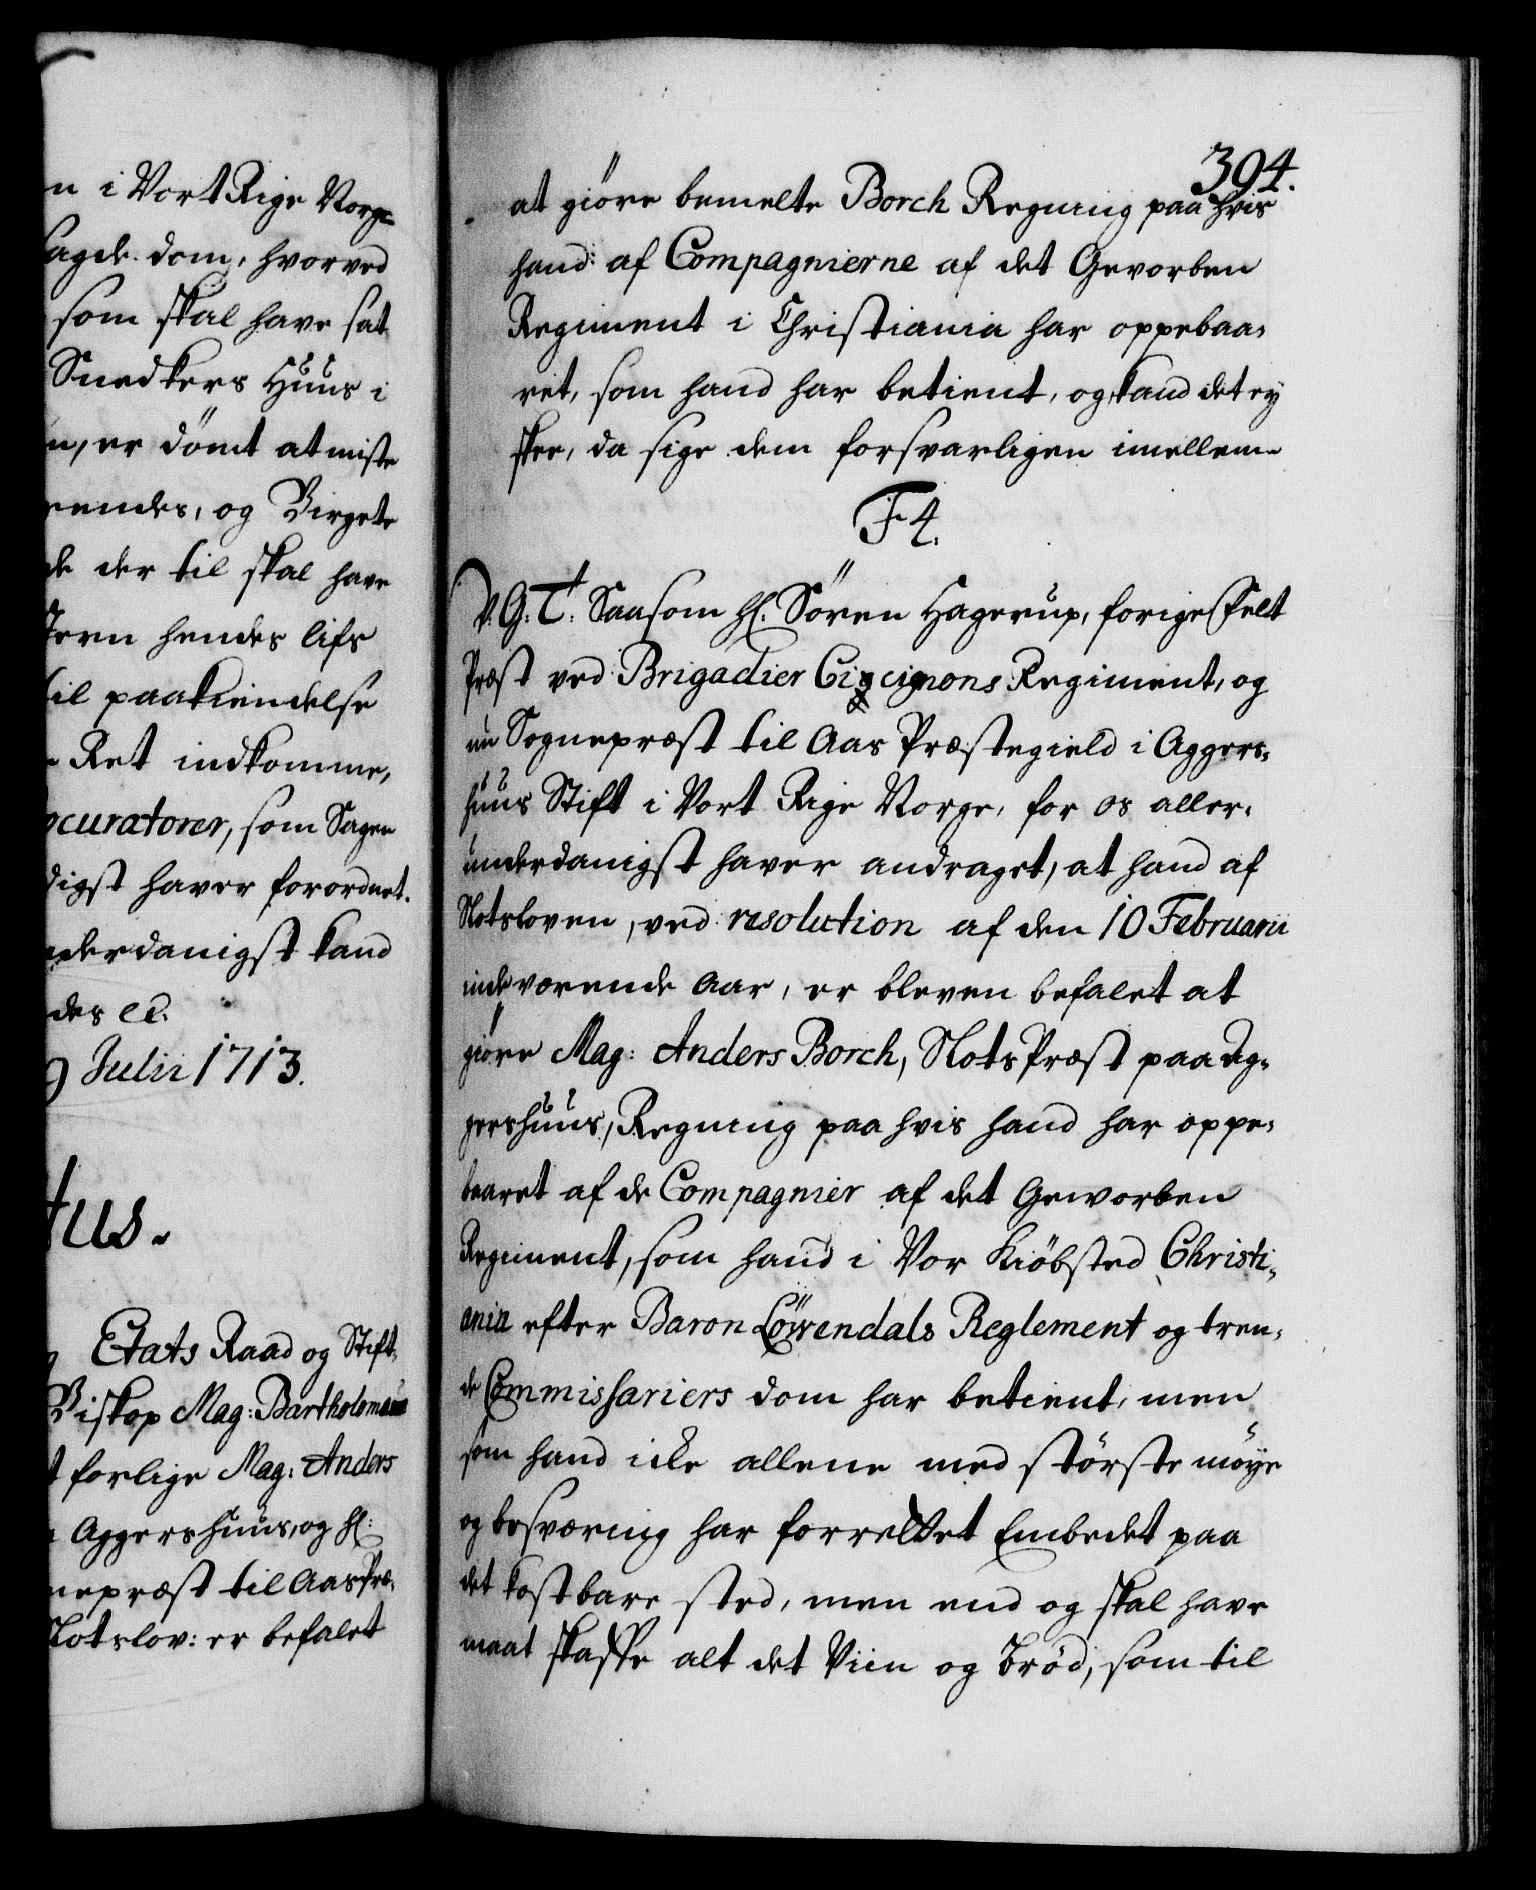 n i Vort Rige Norge
sagde dom, hvorved
som skal have sat
Snedkers Huus i
n, er dömt at miste
rendes, og Birgete
de der til skal have
Jern hendes lifs
til paakiendelse
Ret indkomme,
ocuratorer, som Sagen
digst haver forordnet.
nderdanigst kand
des etc.
9 Julii 1713.
tus.
Etats Raad og Stift-
Biskop Mag: Bartholomæus
t forlige Mag: Anders
Aggershuus, og hl:
nepræst til Aas Præ-
Slotslov: er befalet
394.
at giöre bemelte Borch Regning paa hvis
hand af Compagnierne af det Gevorben
Regiment i Christiania har oppebaa-
ret, som hand har betient, og kand det ey
skee, da sige dem forsvarligen imellem
F 4.
V. G. T. Saasom hl. Sören Hagerup, forige Felt
Præst ved Brigadier Cicignons Regiment, og
nu Sognepræst til Aas Præstegield i Aggers-
huus Stift i Vort Rige Norge, for os aller-
underdanigst haver andraget, at hand af
Slotsloven, ved resolution af den 10 Februarii
indeværende Aar, er bleven befalet at
giöre Mag: Anders Borch, Slots Præst paa Ag-
gershuus, Regning paa hvis hand har oppe-
baaret af de Compagnier af det Geworben
Regiment, som hand i Vor Kiöbsted Christi-
ania efter Baron Löwendals Reglement og tven-
de Commissariers dom har betient, men
som hand icke allene med störste möye
og besværing har forrettet Embedet paa
det kostbare sted, men end og skal have
maat skaffe alt det Viin og Bröd, som til